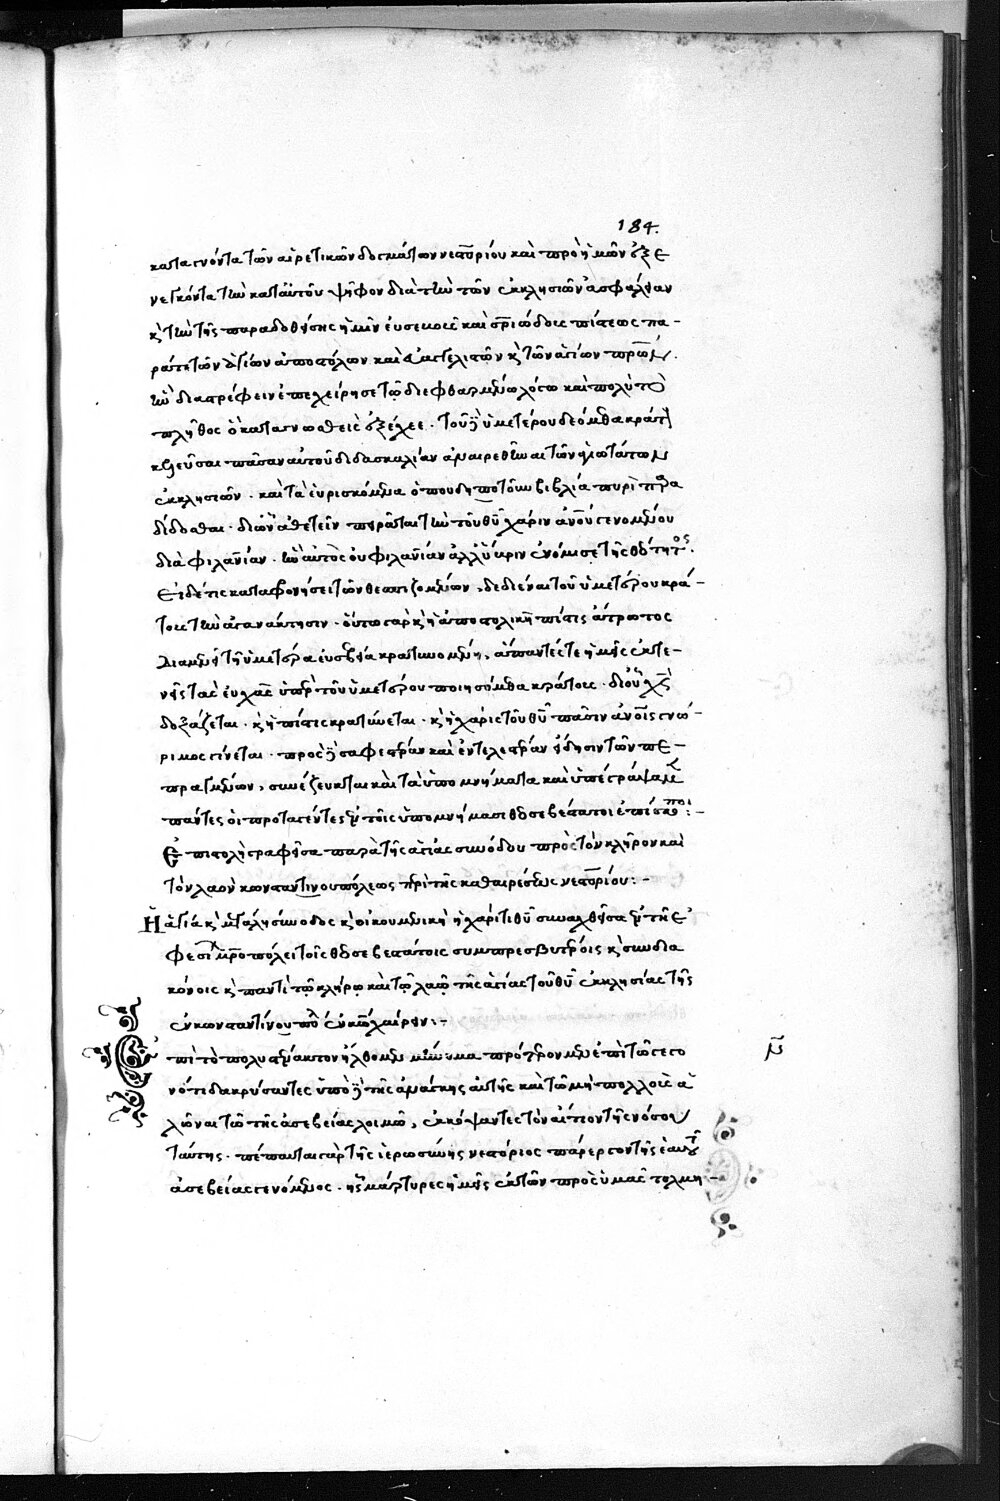 184.
καταγνόντα τῶν αἱρετικῶν δογμάτων νεστορίου καὶ πρὸ ἡμῶν ἐξε
νεγκόντα τὴν κατ αὐτοῦ ψῆφον διὰ τὴν τῶν ἐκκλησιῶν ἀσφάλειαν
κ τὴν τῆς παραδοθείσης ἡμῖν εὐσεβοῦς καὶ πίστεως πα-
ρά τε τῶν ἁγίων ἀποστόλων καὶ εὐαγγελιστῶν κ τῶν ἁγίων πρων.
ἣν διαστρέφειν ἐπεχείρησε τῷ διεφθαρμένῳ λόγῳ καὶ πολὺ τὸ
πλῆθος ὁ καταγνωσθεὶς ἐξέχεε. τοῦ ὑμετέρου δεόμεθα κράτους
κελεῦσαι πᾶσαν αὐτοῦ διδασκαλίαν ἀναιρεθῆναι τῶν ἁγιωτάτων
ἐκκλησιῶν. καὶ τὰ εὑρισκόμενα ὁπουδήποτοῦν βιβλία πυρὶ παρα
δίδοσθαι. δι ὧν ἀθετεῖν πειρᾶται τὴν τοῦ θυ χάριν ἀνου γενομένου
διὰ φιλανίαν. ἣν αὐτὸς οὐ φιλανίαν ἀλλ ὕβριν ἐνόμισε τῆς θεότητος.
Εἰ δέ τις καταφρονήσει τῶν θεσπιζομένων, δεδιέναι τοῦ ὑμετέρου κρά-
τους τὴν ἀγανάκτησιν. οὕτω γὰρ κ ἡ ἀποστολικὴ πίστις ἄτρωτος
διαμενεῖ τῇ ὑμετέρα εὐσεβεία κρατυνομένη, ἅπαντές τε ἡμεῖς ἐκτε-
νεῖς τὰς εὐχὰς ὑπὲρ τοῦ ὑμετέρου ποιησόμεθα κράτους. δι οὗ χς
δοξάζεται. κ ἡ πίστις κρατύνεται. κ ἡ χάρις τοῦ θυ πᾶσιν ἀνοις γνώ-
ριμος γίνεται. πρὸς σαφεστέραν καὶ ἐντελεστέραν εἴδησιν τῶν πε-
πραγμένων, συνέζευκται καὶ τὰ ὑπομνήματα καὶ ὑπεγράψαμεν
πάντες οἱ προταγέντες ἐν τοῖς ὑπομνήμασι θεοσεβέστατοι ἐπίσκοποι:-
Ἐπιστολὴ γραφεῖσα παρὰ τῆς ἁγίας συνόδου πρὸς τὸν κλῆρον καὶ
τὸν λαὸν κωνσταντινουπόλεως περὶ τῆς καθαιρέσεως νεστορίου:-
Ἡ ἁγία κ μεγάλη σύνοδος κ οἰκουμενικὴ ἡ χάριτι θυ συναχθεῖσα ἐν τῇ ἐ
φεσίων μητροπόλει τοῖς θεοσεβεστάτοις συμπρεσβυτέροις κ συνδια
κόνοις κ παντὶ τῷ κλήρῳ καὶ τῷ λαῷ τῆς ἁγίας τοῦ θυ ἐκκλησίας τῆς
ἐν κωνσταντίνου πόλ ἐν κω χαίρειν:-
Ἐπὶ τὸ πολυστένακτον ἤλθομεν μήνυμα πρότερον μὲν ἐπὶ τῷ γεγο
νότι δακρύσαντες ὑπὸ τῆς ἀνάγκης αὐτῆς καὶ τῷ μὴ πολλοὺς ἁ
λῶναι τῷ τῆς ἀσεβείας λοιμῷ, ἐκκόψαντες τὸν αἴτιον τῆς νόσου
ταύτης. πέπαυται γὰρ τῆς ἱερωσύνης νεστόριος πάρεργον τῆς ἑαυτοῦ
ἀσεβείας γενόμενος. ἧς μάρτυρες ἡμεῖς ἐκ τῶν πρὸς ὑμᾶς τολμη-